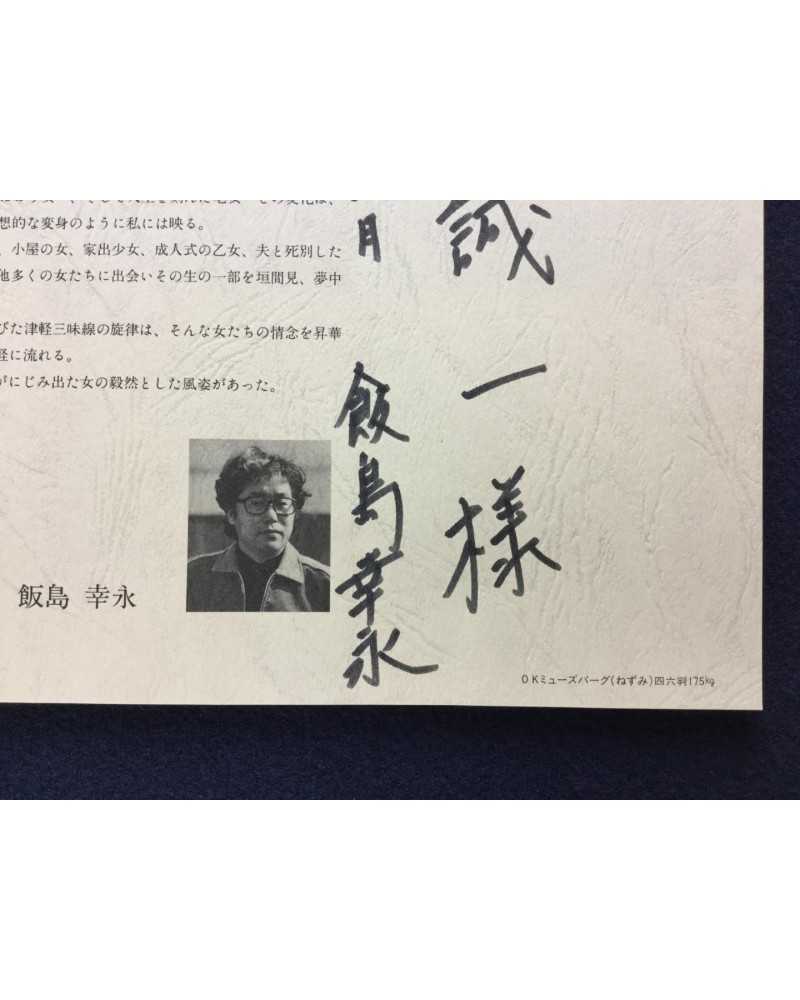 想的な変身のように私には映る。
、小屋の女、家出少女、成人式の乙女、夫と死別した
他多くの女たちに出会いその生の一部を垣間見、夢中
びた津軽三味線の旋律は、そんな女たちの情念を昇華
軽に流れる。
がにじみ出た女の毅然とした風姿があった。
飯島 幸永
誠一様
月
飯島幸永
OKミューズバーグ(ねずみ)四六判175kg